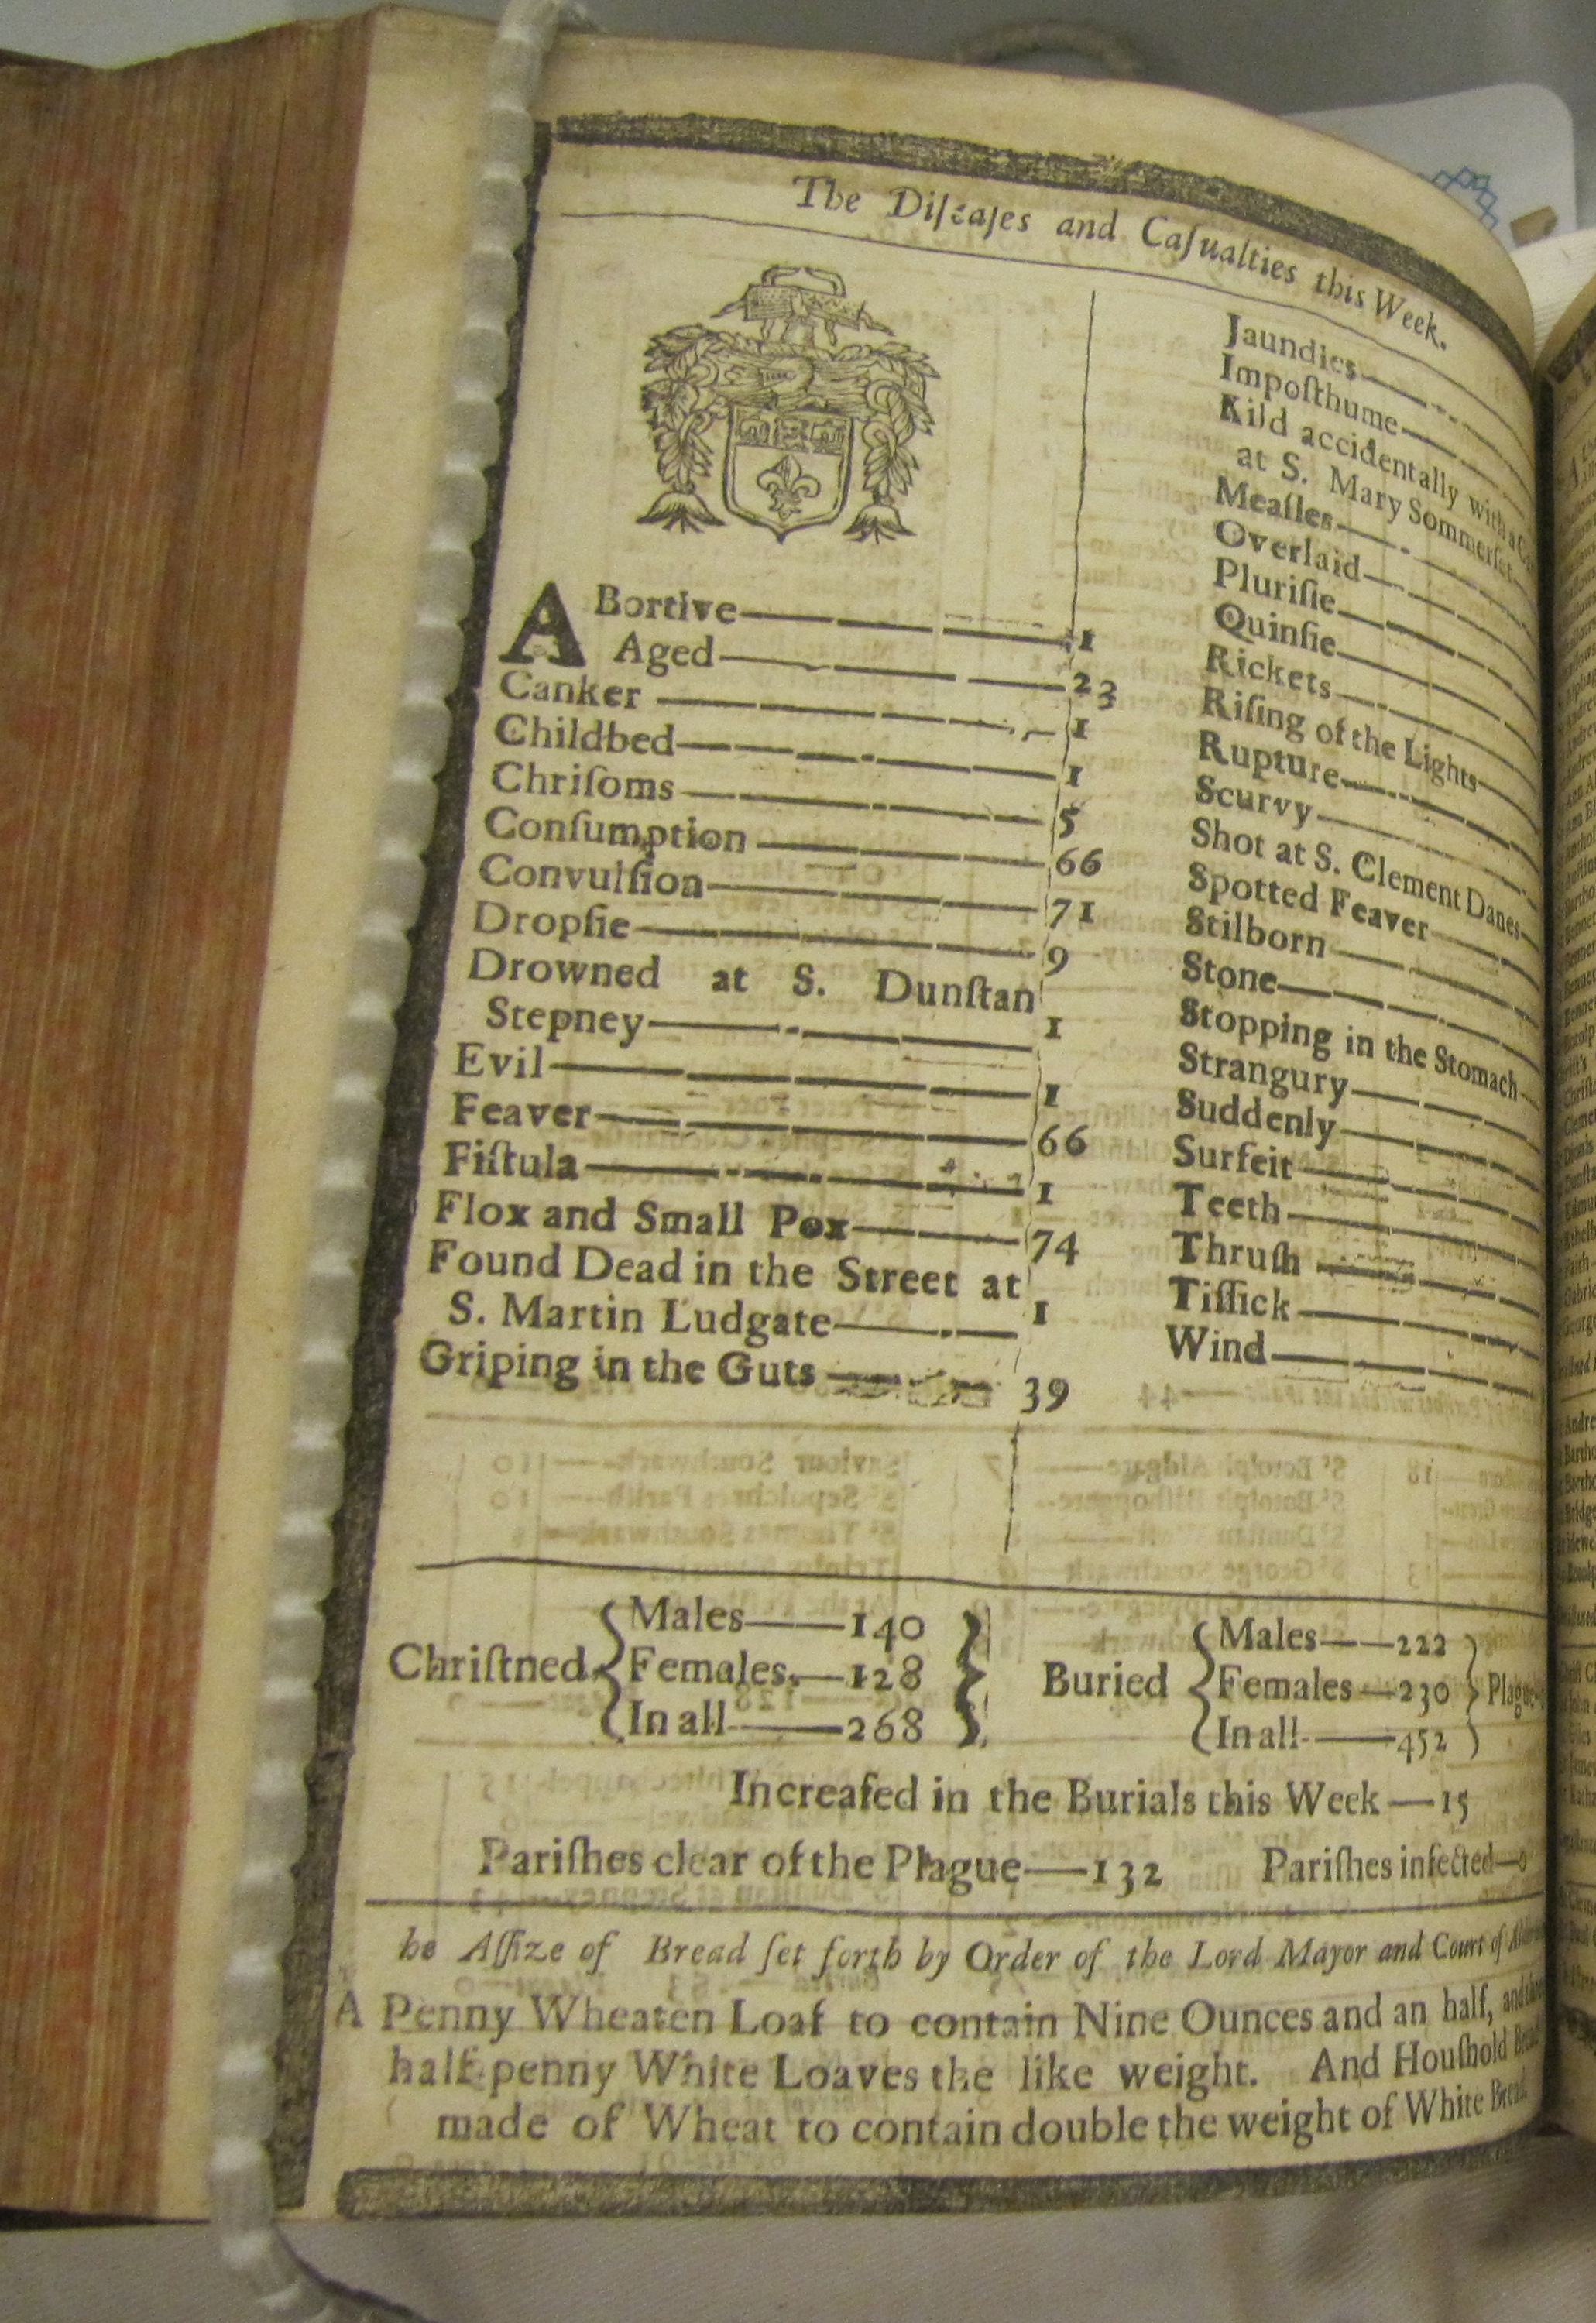 The Diſeaſes and Caſualties this Week.
ABortive 1
Aged 23
Canker 1
Childbed 1
Chriſoms 5
Conſumption 66
Convulſion 71
Dropſie 9
Drowned at S. Dunſtan
Stepney 1
Evil 1
Feaver 66
Fiſtula 1
Flox and Small Pox 74
Found Dead in the Street at
S. Martin Ludgate 1
Griping in the Guts 39
Jaundies
Impoſthume
Kild accidentally with a
at S. Mary Sommerſet
Meaſles
Overlaid
Pluriſie
Quinſie
Rickets
Riſing of the Lights
Rupture
Scurvy
Shot at S. Clement Danes
Spotted Feaver
Stilborn
Stone
Stopping in the Stomach
Strangury
Suddenly
Surfeit
Teeth
Thruſh
Tiſſick
Wind
Chriſtned
Males 140
Females 128
In all 268
Buried
Males 222
Females 230
In all 452
Plague
Increaſed in the Burials this Week 15
Pariſhes clear of the Plague 132 Pariſhes infected 0
he Aſſize of Bread ſet forth by Order of the Lord Mayor and Court of
A Penny Wheaten Loaf to contain Nine Ounces and an half, and
half-penny White Loaves the like weight. And Houſhold
made of Wheat to contain double the weight of White